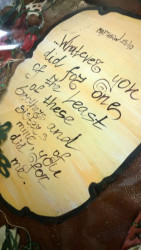 Matthew 25:40
Whatever you
did for one
of the least
of these
brothers and
sisters of
mine you
did for
me.